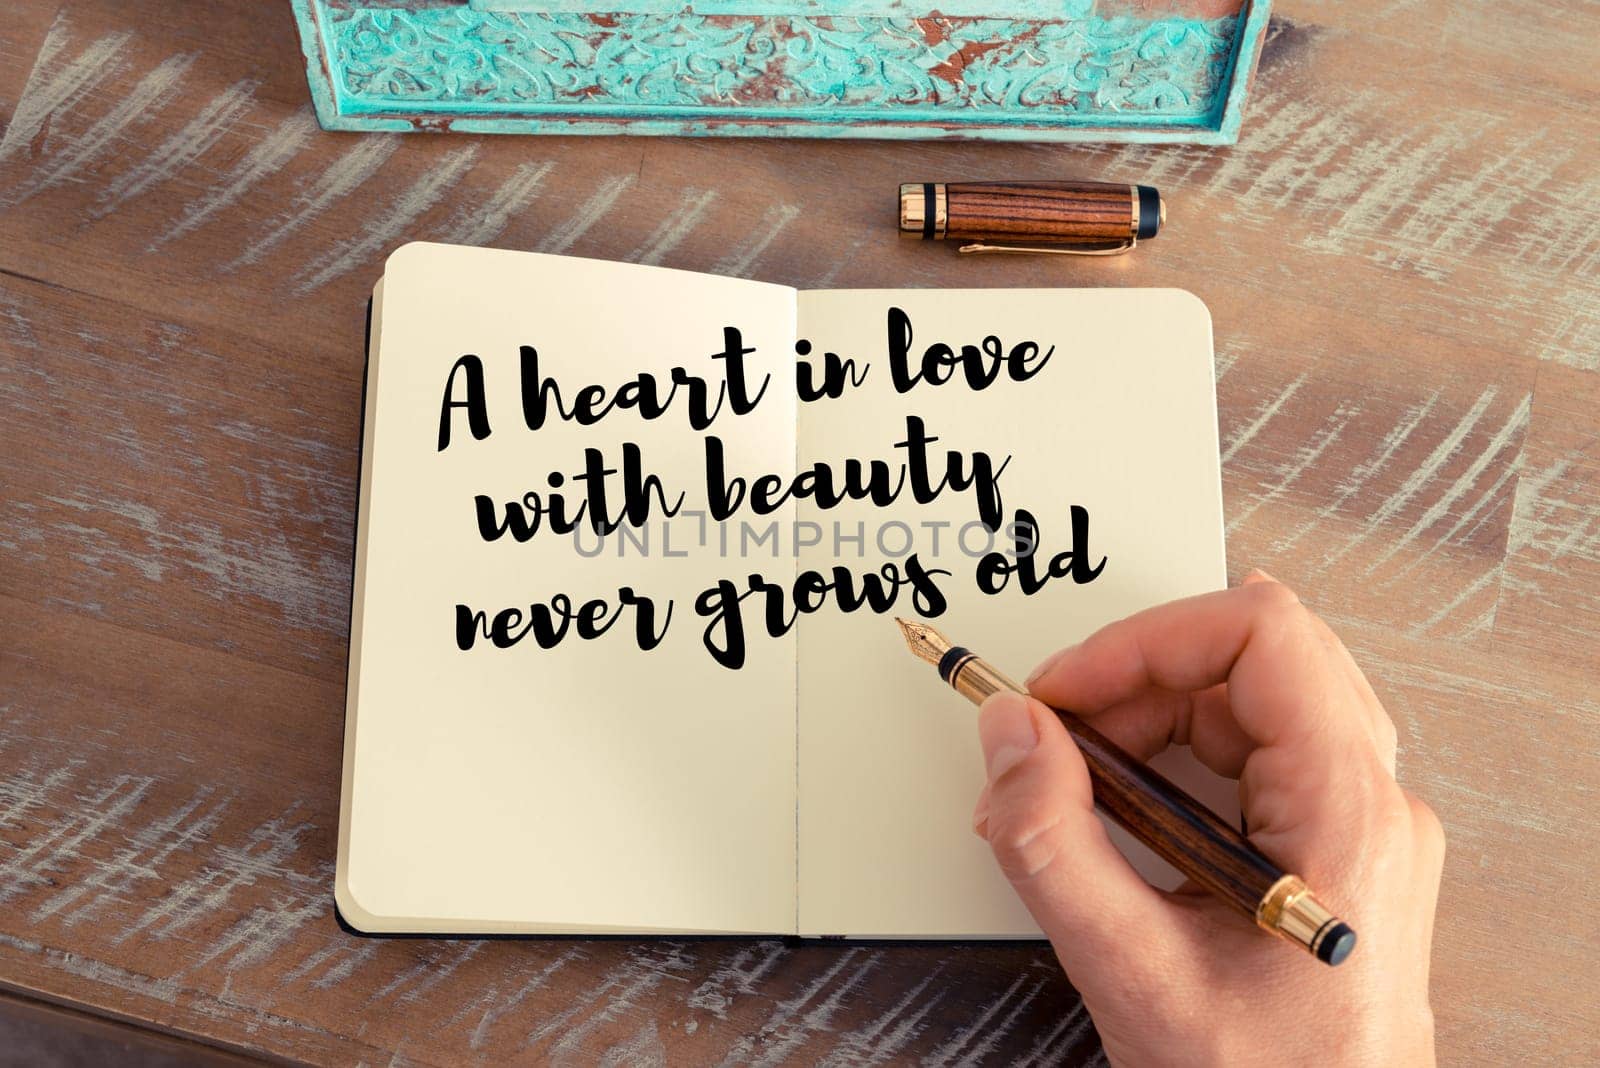 A heart in love
with beauty
UNLIMPHOTOS
never grows old